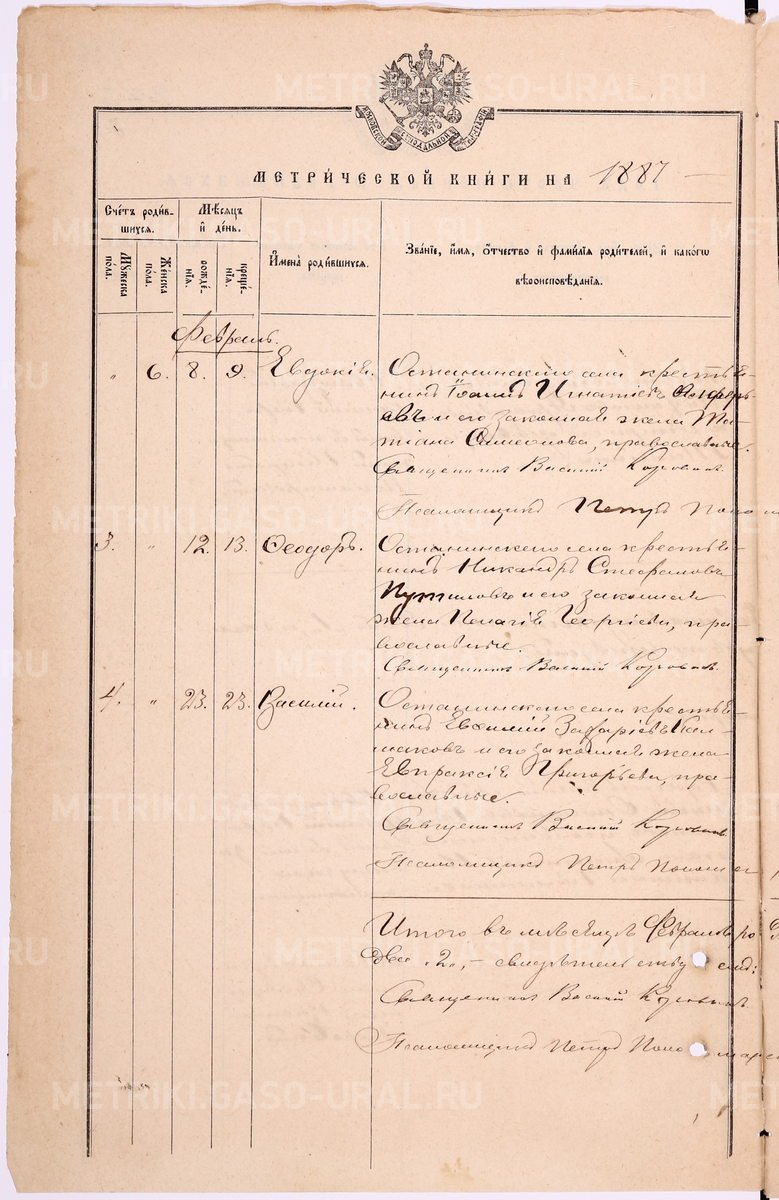 МЕТРИ́ЧЕСКОЙ КНИ́ГИ НА 1887
Сче́тъ роди́в-
шихся.
Мѣ́сяцъ
и҆ де́нь.
Мꙋжеска
по́ла.
Же́нска
по́ла.
рожде́-
нїя.
креще́-
нїя.
И҆мена̀ роди́вшихся.
Зва́нїе, и҆́мя, ѻ҆́тчество и҆ фами́лїя роди́телей, и҆ како́гѡ
вѣроисповѣ́данїя.
Февраль.
„ 6. 8. 9. Евдокія.
Останинскаго села крестья-
нинъ Іоаннъ Игнатіевъ
и его законная жена Та-
тіана Симеонова, православные.
Священникъ Василій Коровинъ
Псаломщикъ Петръ
3. „ 12. 13. Ѳеодоръ.
Останинскаго села крестья-
нинъ Никандръ Стефановъ
Путиловъ и его законная
жена Пелагія Георгіева, пра-
вославные.
Священникъ Василій Коровинъ.
4. „ 23. 23. Василій.
Останинскаго села крестья-
нинъ Евѳимій Захаріевъ Кал-
маковъ и его законная жена
Евпраксія Григорьева, пра-
вославные.
Священникъ Василій Коровинъ.
Псаломщикъ Петръ Пономар
Итого въ мѣсяцѣ Февралѣ ро
два „2„ – свидѣтельству
Священникъ Василій Коровинъ
Псаломщикъ Петръ Пономаре
METRIKI.GASO-URAL.RU